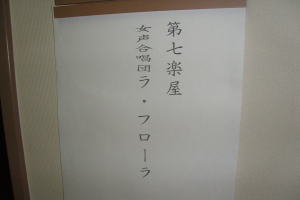 第七楽屋
女声合唱団ラ・フローラ